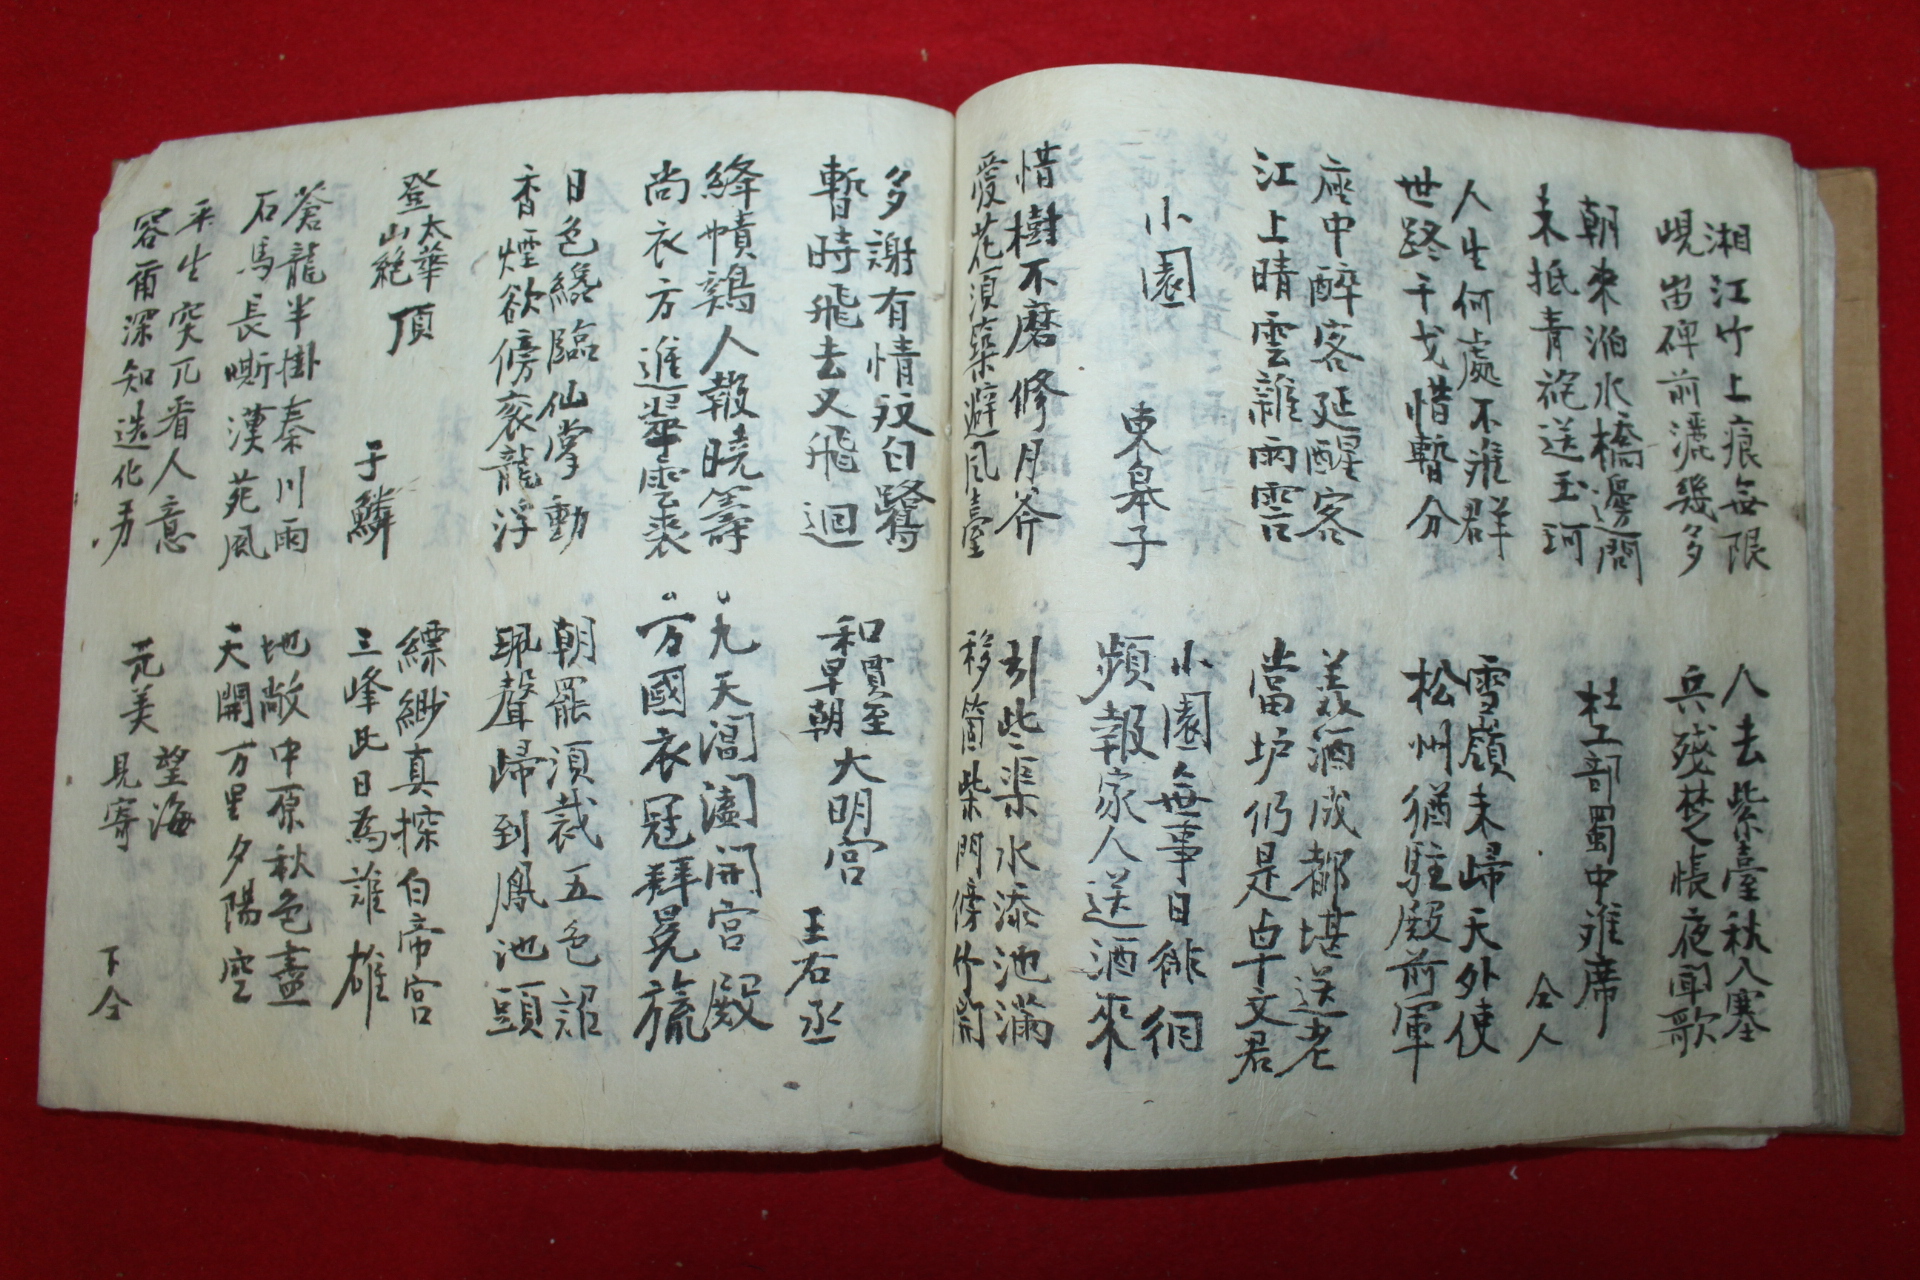 湘江竹上痕無限
峴岀碑前灑幾多
人去紫臺秋入塞
兵殘楚帳夜聞歌
朝來泊水橋邊問
未抵青袍送玉珂
杜工部蜀中離席
仝人
人生何處不離群
世路干戈惜暫分
雪嶺未歸天外使
松州猶駐殿前軍
座中醉客延醒客
江上晴雲雜雨雲
美酒成都堪送老
當垆仍是卓文君
小園 東皐子
小園無事日徘徊
頻報家人送酒來
惜樹不磨修月斧
愛花須築避風臺
引此渠水添池滿
移箇柴門傍竹開
多謝有情双白鷺
暫時飛去又飛迴
和賈至早朝大明宮
王右丞
絳幘鷄人報曉籌
尚衣方進翠雲裘
九天閶闔開宮殿
万國衣冠拜冕旒
日色纔臨仙掌動
香煙欲傍袞龍浮
朝罷須裁五色詔
珮聲歸到鳳池頭
登太華山絶頂 于鱗
縹緲真探白帝宮
三峰此日為誰雄
蒼龍半掛秦川雨
石馬長嘶漢苑風
地敞中原秋色盡
天開万里夕陽空
平生突兀看人意
容爾深知造化功
元美望海見寄 下仝